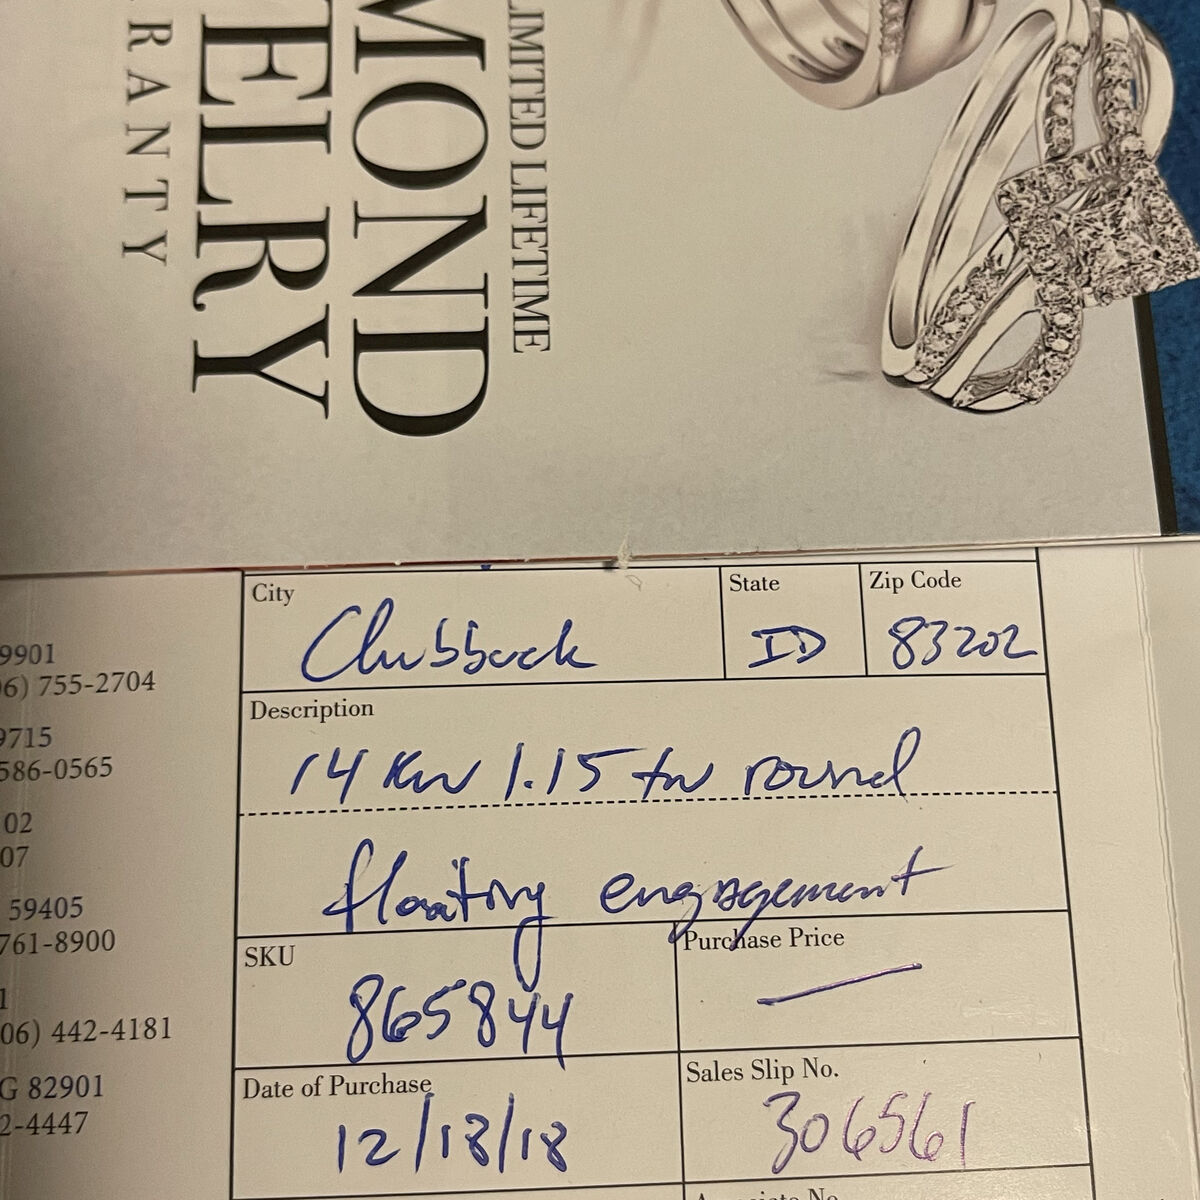 LIMITED LIFETIME
MOND
ELRY
RANTY
9901
06) 755-2704
9715
586-0565
02
07
59405
761-8900
1
06) 442-4181
G 82901
2-4447
City
Chubbuck
State
ID
Zip Code
83202
Description
14 KW 1.15 tw round
floating engagement
SKU
865844
Purchase Price
—
Date of Purchase
12/18/18
Sales Slip No.
306561